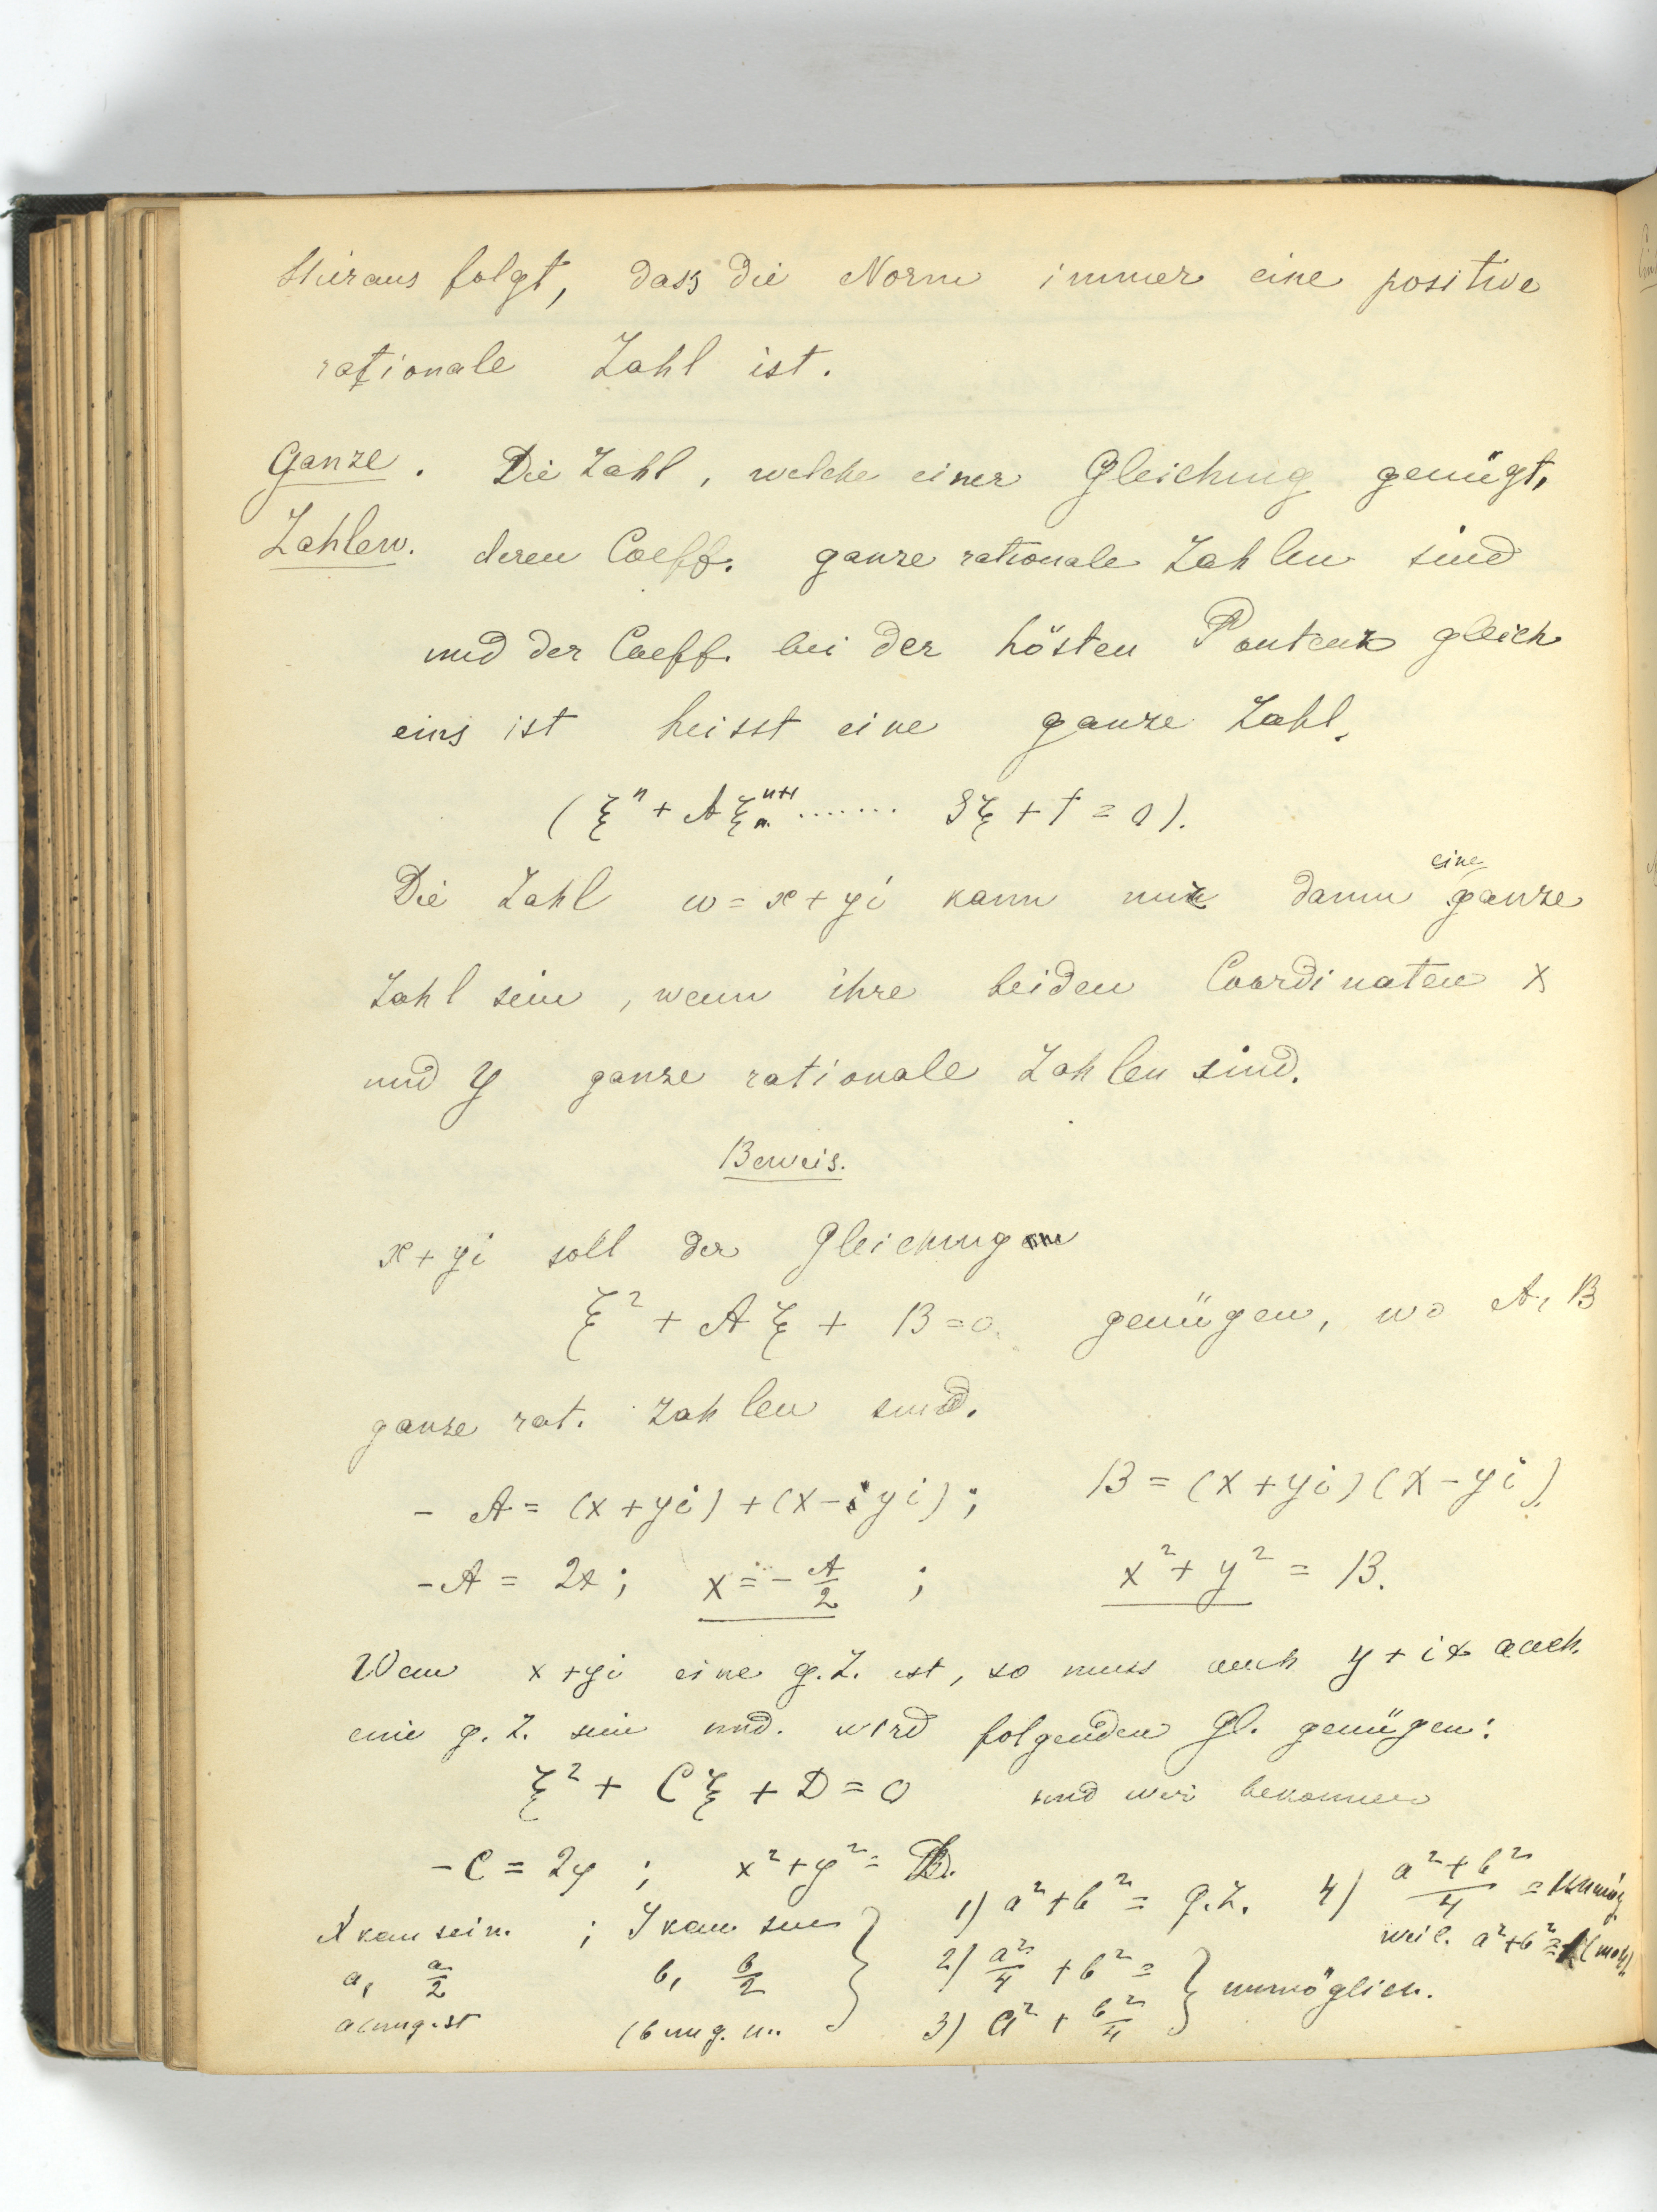 Hieraus folgt, dass die Norm immer eine positive
rationale Zahl ist.
Ganze. Die Zahl, welche einer Gleichung genügt,
Zahlen. deren Coeff. ganze rationale Zahlen sind
und der Coeff. bei der hösten Pontenz gleich
eins ist heisst eine ganze Zahl.
(ξⁿ + Aξⁿ⁺¹ ....... Sξ + T = 0).
Die Zahl ω = x + yi kann nur dann eine ganze
Zahl sein, wenn ihre beiden Coordinaten x
und y ganze rationale Zahlen sind.
Beweis.
x + yi soll der Gleichung
ξ² + Aξ + B = 0. genügen, wo A, B
ganze rat. Zahlen sind.
- A = (x + yi) + (x - yi); B = (x + yi)(x - yi).
- A = 2x; x = - A/2 ; x² + y² = B.
Wenn x + yi eine g. Z. ist, so muss auch y + ix auch
eine g. Z. sein und. wird folgenden Gl. genügen:
ξ² + Cξ + D = 0 und wir bekommen
- C = 2y ; x² + y² = D.
X kann sein. ; Y kann sein } 1) a² + b² = g. Z. 4) (a² + b²)/4 =
a, a/2 b, b/2 2) a²/4 + b² = } unmöglich. weil. a² + b² ≡
(a ung. ist (b ung. 3) a² + b²/4